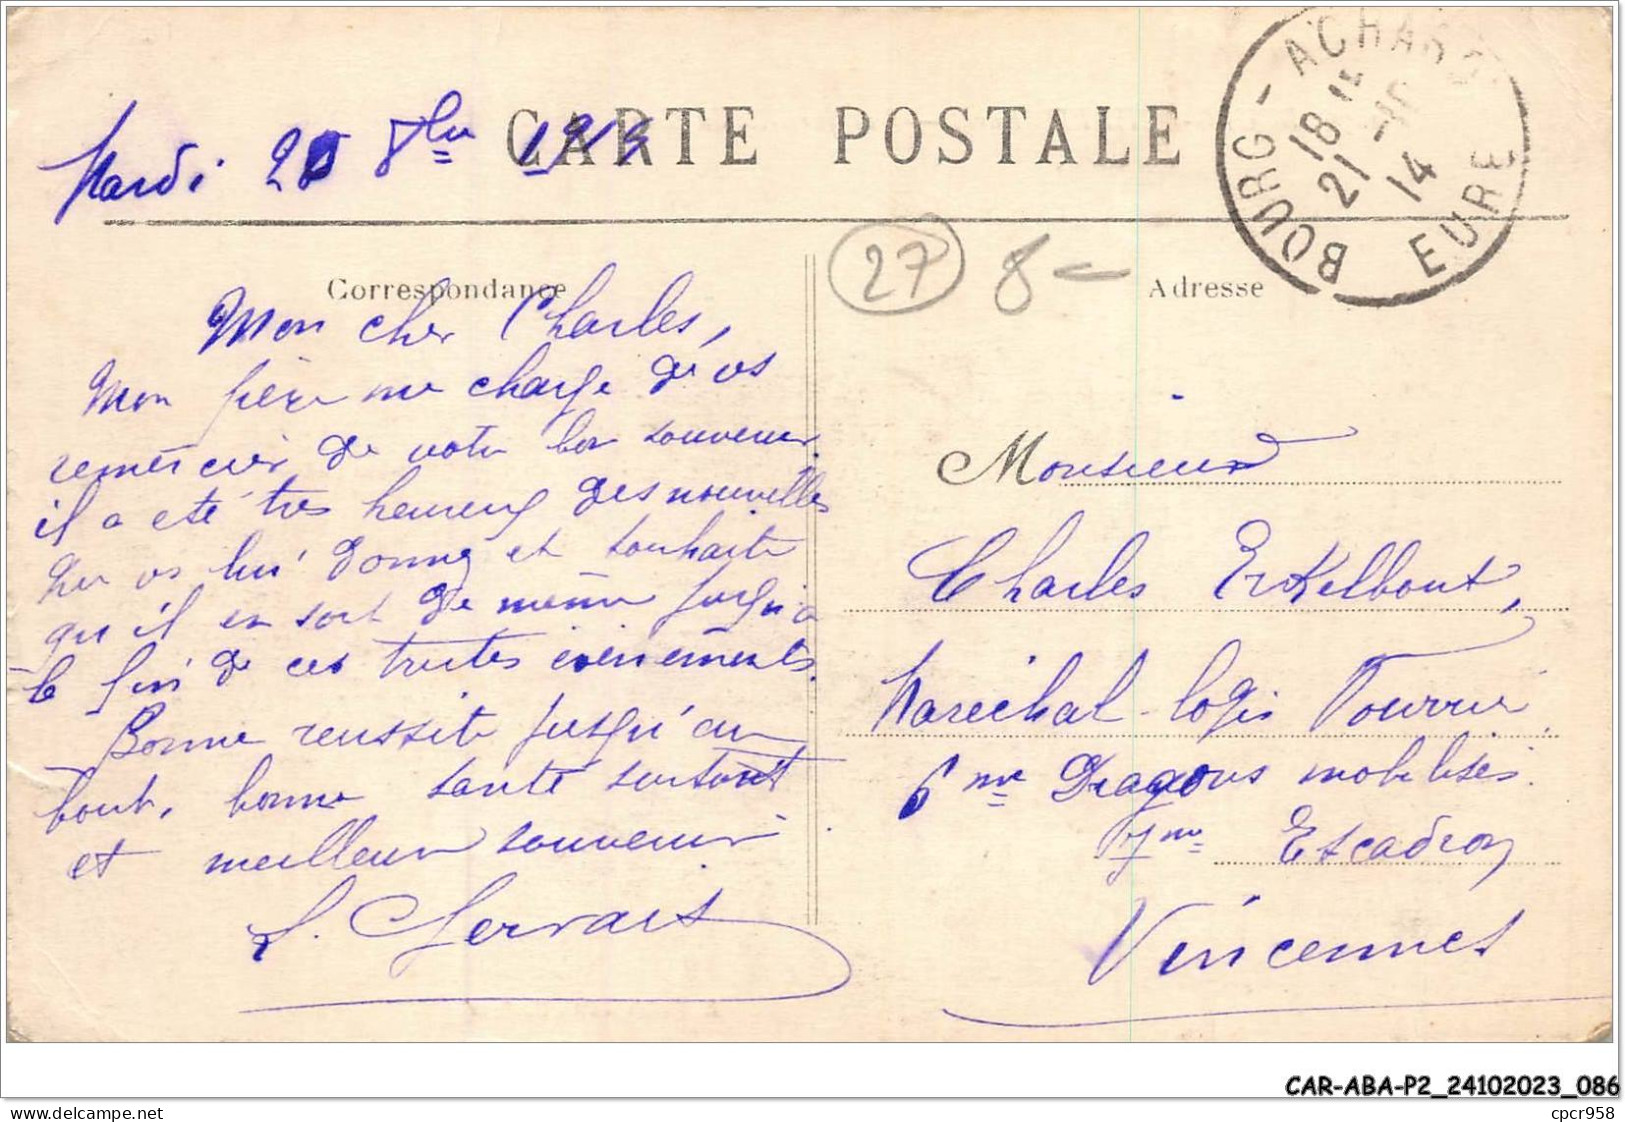 CARTE POSTALE
Mardi 20 8bre 1914
BOURG-ACHARD
18 15
21 -10
14
EURE
27
8-
Correspondance
Adresse
Mon cher Charles,
Mon père me charge de vs
remercier de votre bon souvenir,
il a été très heureux des nouvelles
que vs lui donnez et souhaite
qu'il en soit de même jusqu'à
la fin de ces tristes événements.
Bonne réussite jusqu'au
bout, bonne santé surtout
et meilleur souvenir.
L. Gervais
Monsieur
Charles Erkelbout,
Maréchal-logis Fourrier,
6me Dragons mobilisés.
7me Escadron
Vincennes
CAR-ABA-P2_24102023_086
Delcampe.net
cpcr958